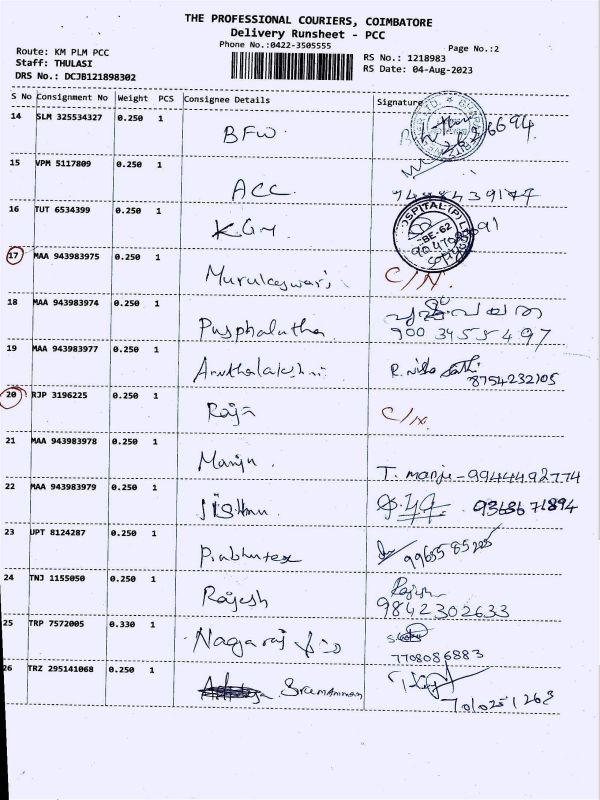 THE PROFESSIONAL COURIERS, COIMBATORE
Delivery Runsheet - PCC
Phone No.:0422-3505555
Page No.:2
Route: KM PLM PCC
Staff: THULASI
DRS No.: DCJB121898302
RS No.: 1218983
RS Date: 04-Aug-2023
S No Consignment No Weight PCS Consignee Details Signature
14 SLM 325534327 0.250 1 BFW
15 VPM 5117809 0.250 1 ACC
16 TUT 6534399 0.250 1 KGM
17 MAA 943983975 0.250 1 Murukeswari C/N.
18 MAA 943983974 0.250 1 Pusphalatha
900 3455497
19 MAA 943983977 0.250 1 R. 8754232105
20 RJP 3196225 0.250 1 Raja C/N.
21 MAA 943983978 0.250 1 Manju. T. manju - 9944492774
22 MAA 943983979 0.250 1 Jishnu 9368671894
23 UPT 8124287 0.250 1 Prabhutex
24 TNJ 1155050 0.250 1 Rajesh
9842302633
25 TRP 7572005 0.330 1 Nagaraj
7708086883
26 TRZ 295141068 0.250 1
7010251263